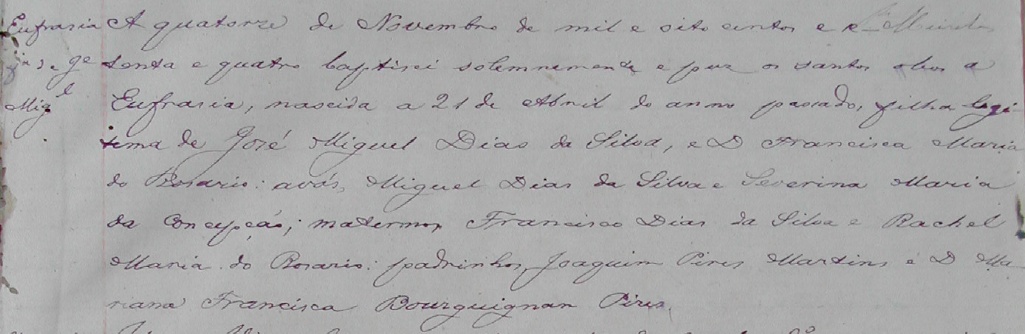 Eufrasia A quatorze de Novembro de mil e oito centos e
senta e quatro baptisei solemnemente e puz os santos oleos a
Eufrasia, nascida a 21 de Abril do anno passado, filha legi
Migl
tima de José Miguel Dias da Silva, e D Francisca Maria
do Rosario: avós, Miguel Dias da Silva e Severina Maria
da Concepção; maternos Francisco Dias da Silva e Rachel
Maria do Rosario: padrinhos, Joaquim Pires Martins e D Ma
riana Francisca Bourguignan Pires.